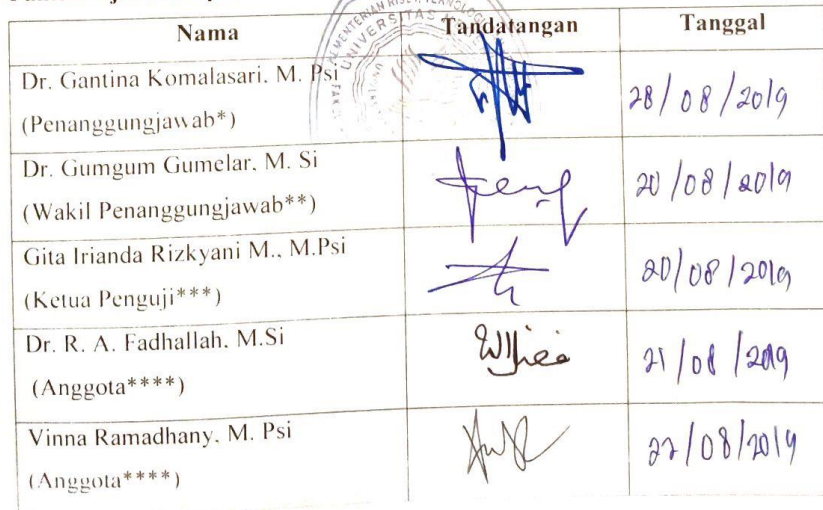 Nama Tandatangan Tanggal
Dr. Gantina Komalasari. M. Psi
(Penanggungjawab*)
28/08/2019
Dr. Gumgum Gumelar, M. Si
(Wakil Penanggungjawab**)
20/08/2019
Gita Irianda Rizkyani M., M.Psi
(Ketua Penguji***)
20/08/2019
Dr. R. A. Fadhallah, M.Si
(Anggota****)
21/08/2019
Vinna Ramadhany, M. Psi
(Anggota****)
22/08/2019